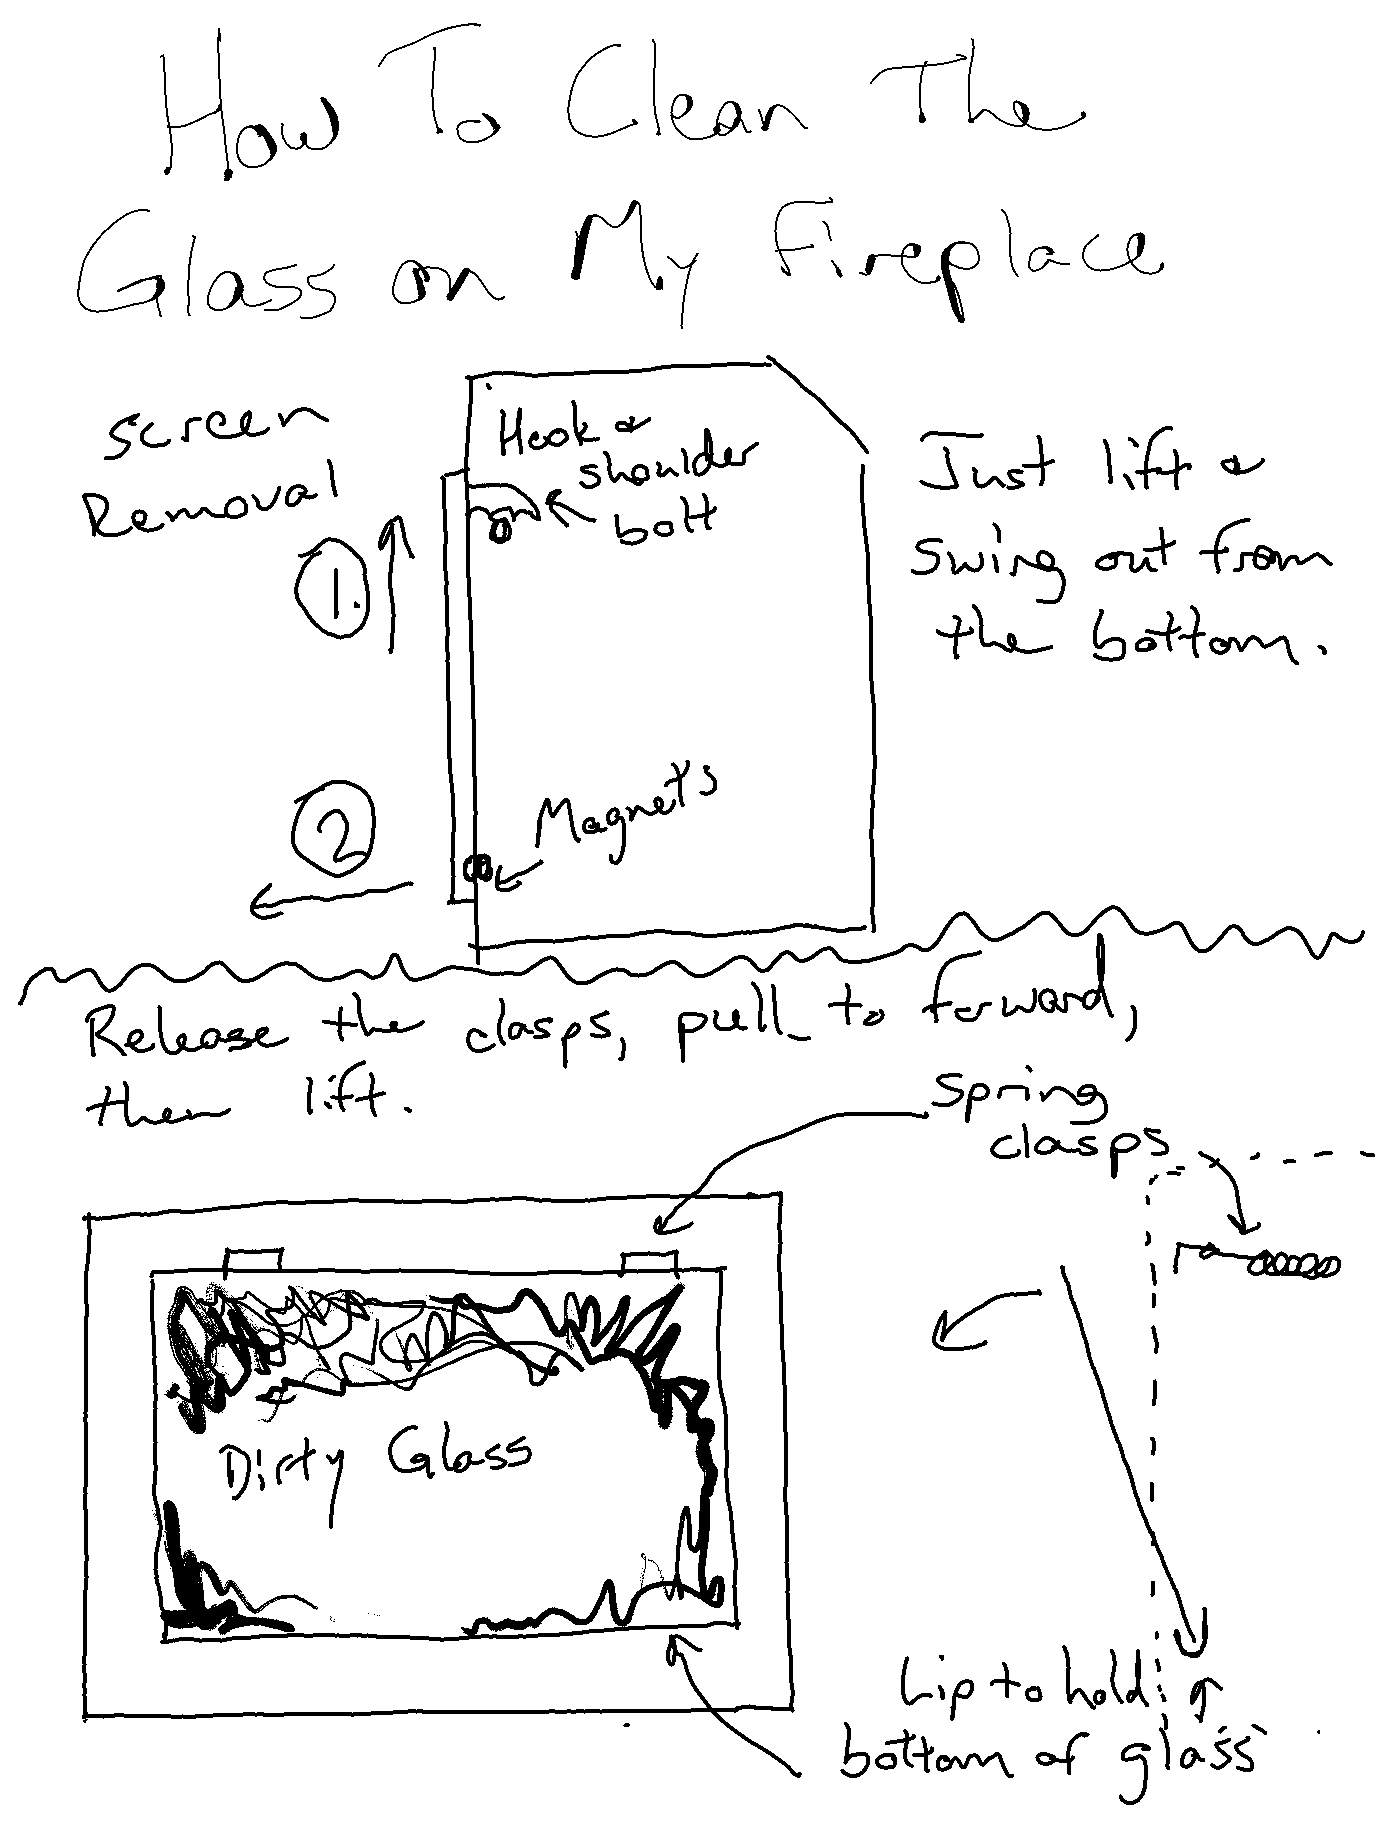 How To Clean The
Glass on My Fireplace
Screen
Removal
Hook &
shoulder
bolt
Just lift &
swing out from
the bottom.
1.
2
Magnets
Release the clasps, pull to forward,
then lift.
Spring
clasps
Dirty Glass
Lip to hold
bottom of glass